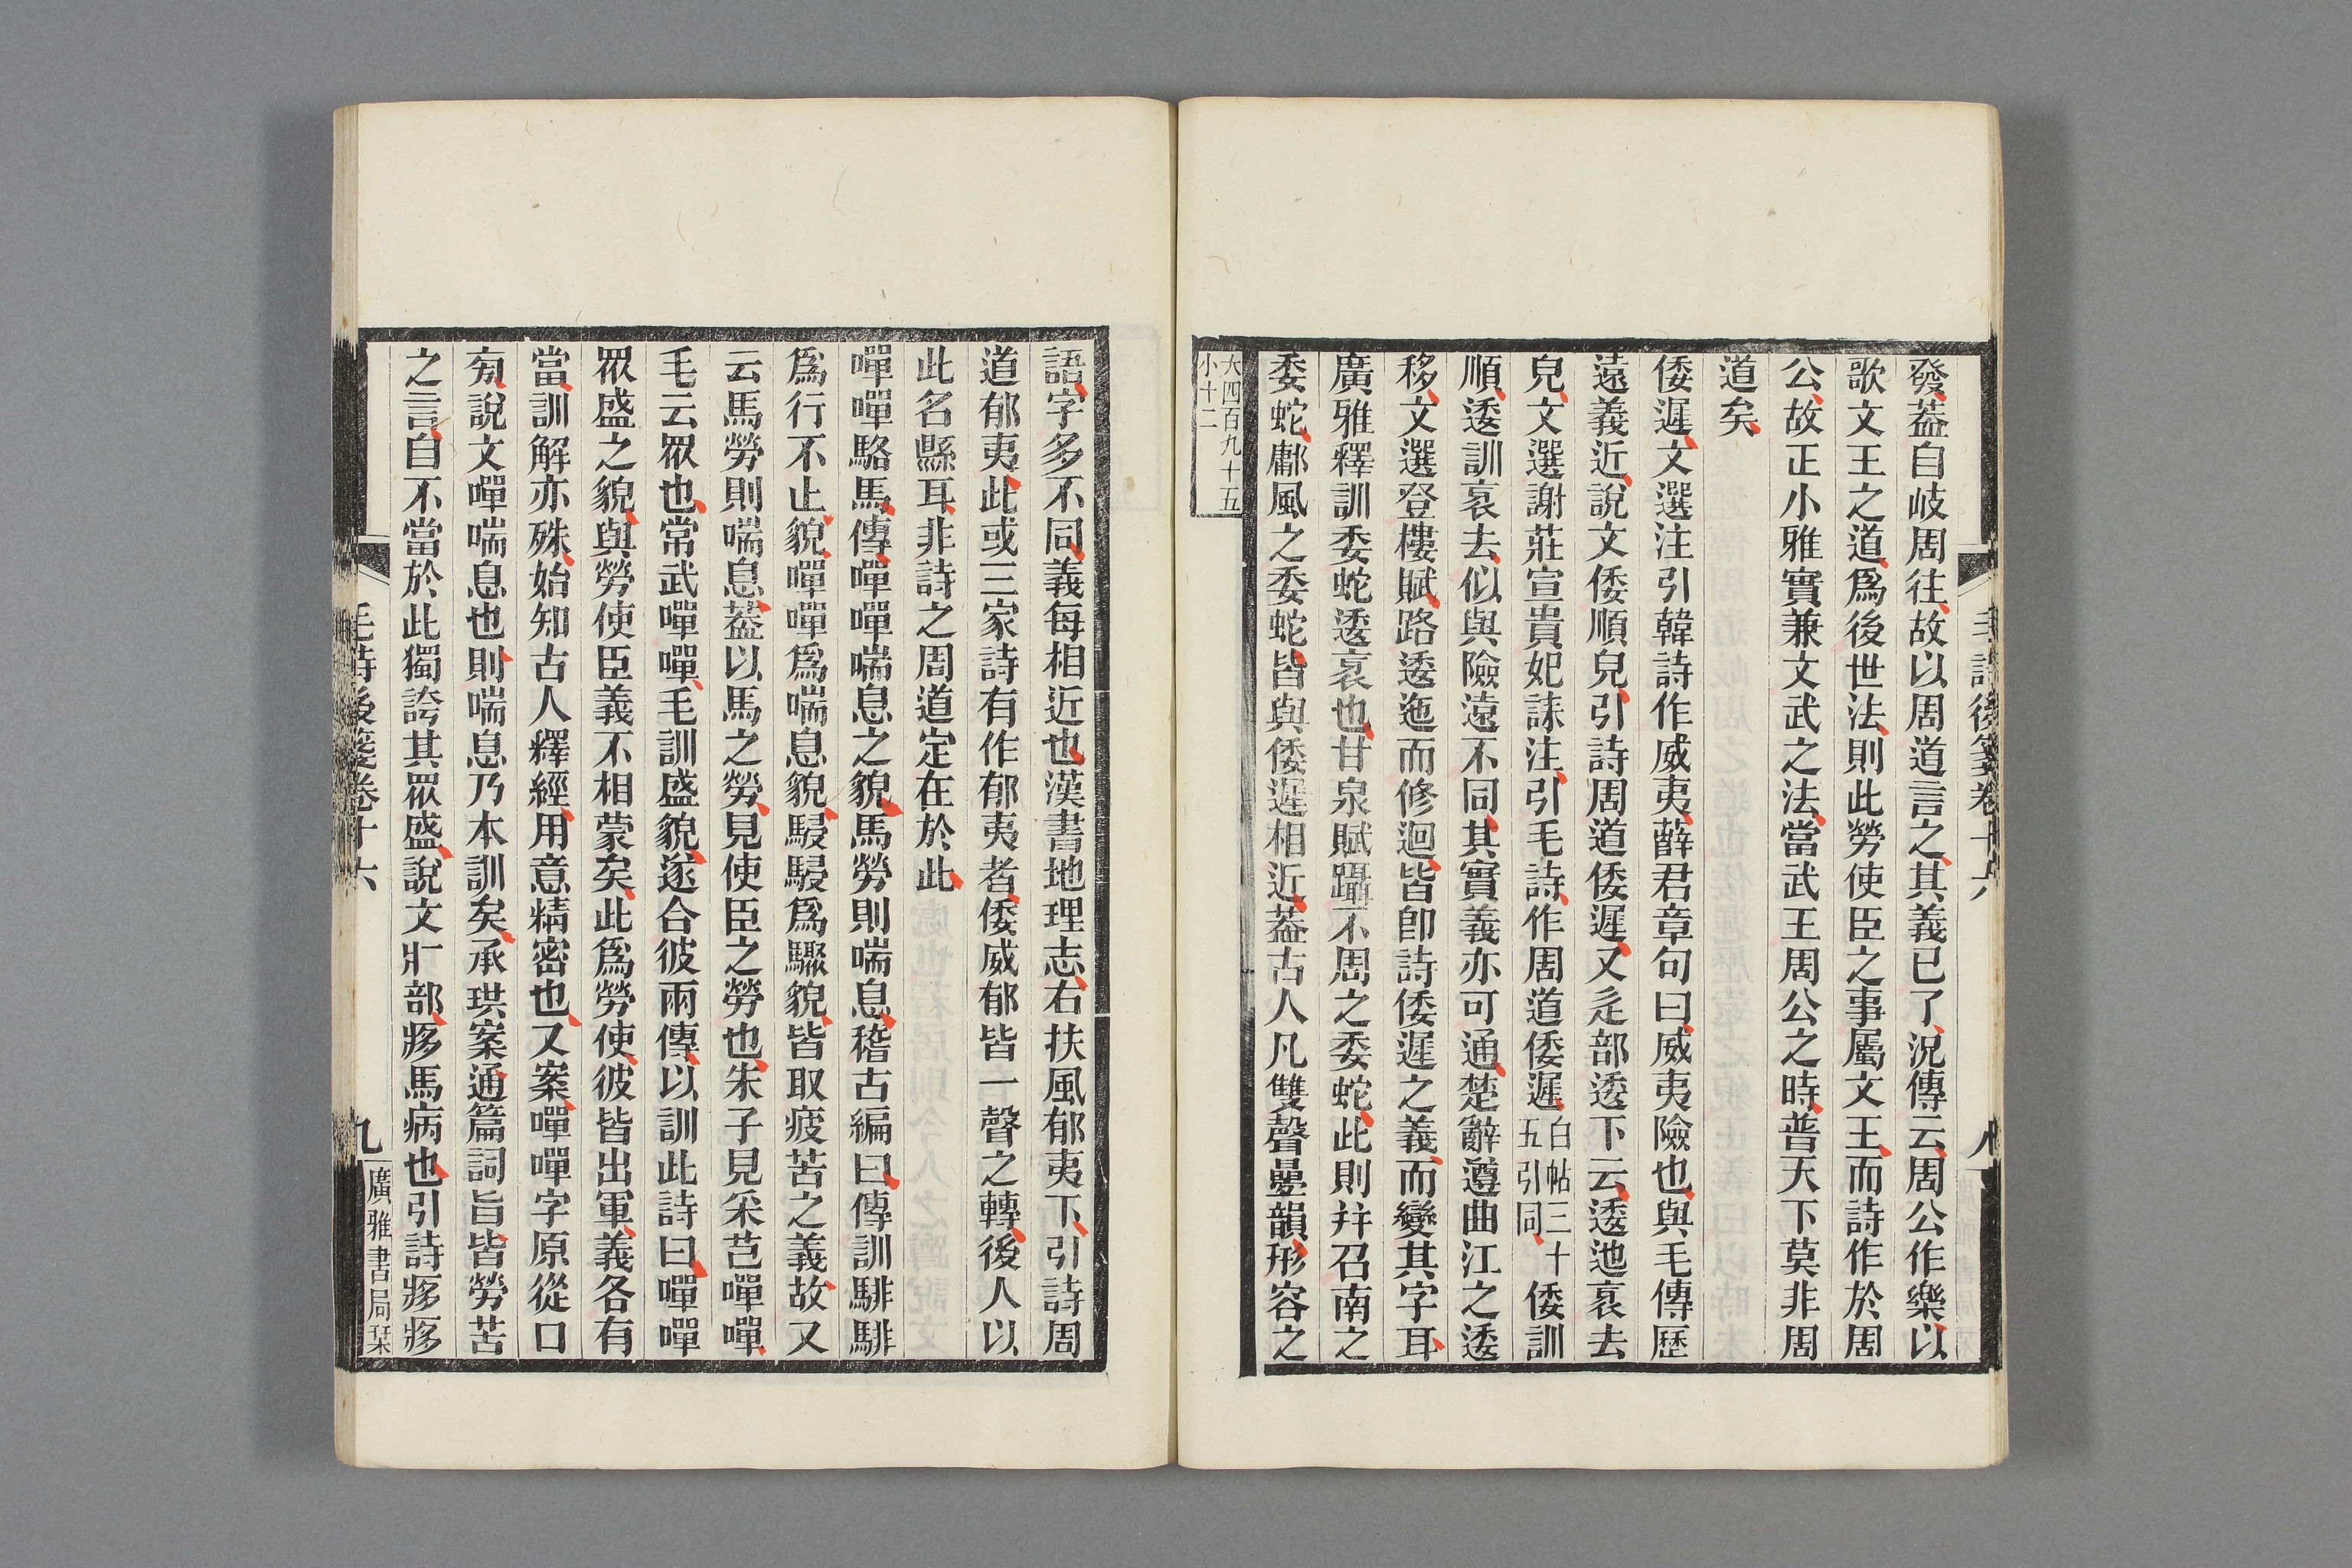 發葢自岐周往故以周道言之其義已了況傳云周公作樂以
歌文王之道爲後世法則此勞使臣之事屬文王而詩作於周
公故正小雅實兼文武之法當武王周公之時普天下莫非周
道矣
倭遲文選注引韓詩作威夷薛君章句曰威夷險也與毛傳歷
遠義近說文倭順皃引詩周道倭遲又辵部逶下云逶迆衺去
皃文選謝莊宣貴妃誄注引毛詩作周道倭遲白帖三十五引同倭訓
順逶訓衺去似與險遠不同其實義亦可通楚辭遵曲江之逶
移文選登樓賦路逶迤而修迴皆卽詩倭遲之義而變其字耳
廣雅釋訓委蛇逶衺也甘泉賦躡不周之委蛇此則幷召南之
委蛇鄘風之委蛇皆與倭遲相近葢古人凡雙聲曡韻形容之
大四百九十五
小十二
毛詩後箋卷十六
八
語字多不同義每相近也漢書地理志右扶風郁夷下引詩周
道郁夷此或三家詩有作郁夷者倭威郁皆一聲之轉後人以
此名縣耳非詩之周道定在於此
嘽嘽駱馬傳嘽嘽喘息之貌馬勞則喘息稽古編曰傳訓騑騑
爲行不止貌嘽嘽爲喘息貌駸駸爲驟貌皆取疲苦之義故又
云馬勞則喘息葢以馬之勞見使臣之勞也朱子見采芑嘽嘽
毛云眾也常武嘽嘽毛訓盛貌遂合彼兩傳以訓此詩曰嘽嘽
眾盛之貌與勞使臣義不相蒙矣此爲勞使彼皆出軍義各有
當訓解亦殊始知古人釋經用意精密也又案嘽嘽字原從口
㫄說文嘽喘息也則喘息乃本訓矣承珙案通篇詞旨皆勞苦
之言自不當於此獨誇其眾盛說文疒部痑馬病也引詩痑痑
毛詩後箋卷十六
九
廣雅書局栞